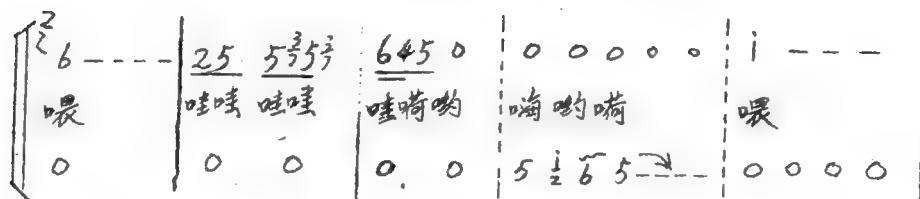 6 - - - - | 25 5 5 | 645 0 ┆ 0 0 0 0 0 ┆ i - - -
喂 哇哇 哇哇 哇嗬哟 嗨哟嗬 喂
0 | 0 0 | 0. 0 ┆ 5 6 5 - - - - ┆ 0 0 0 0